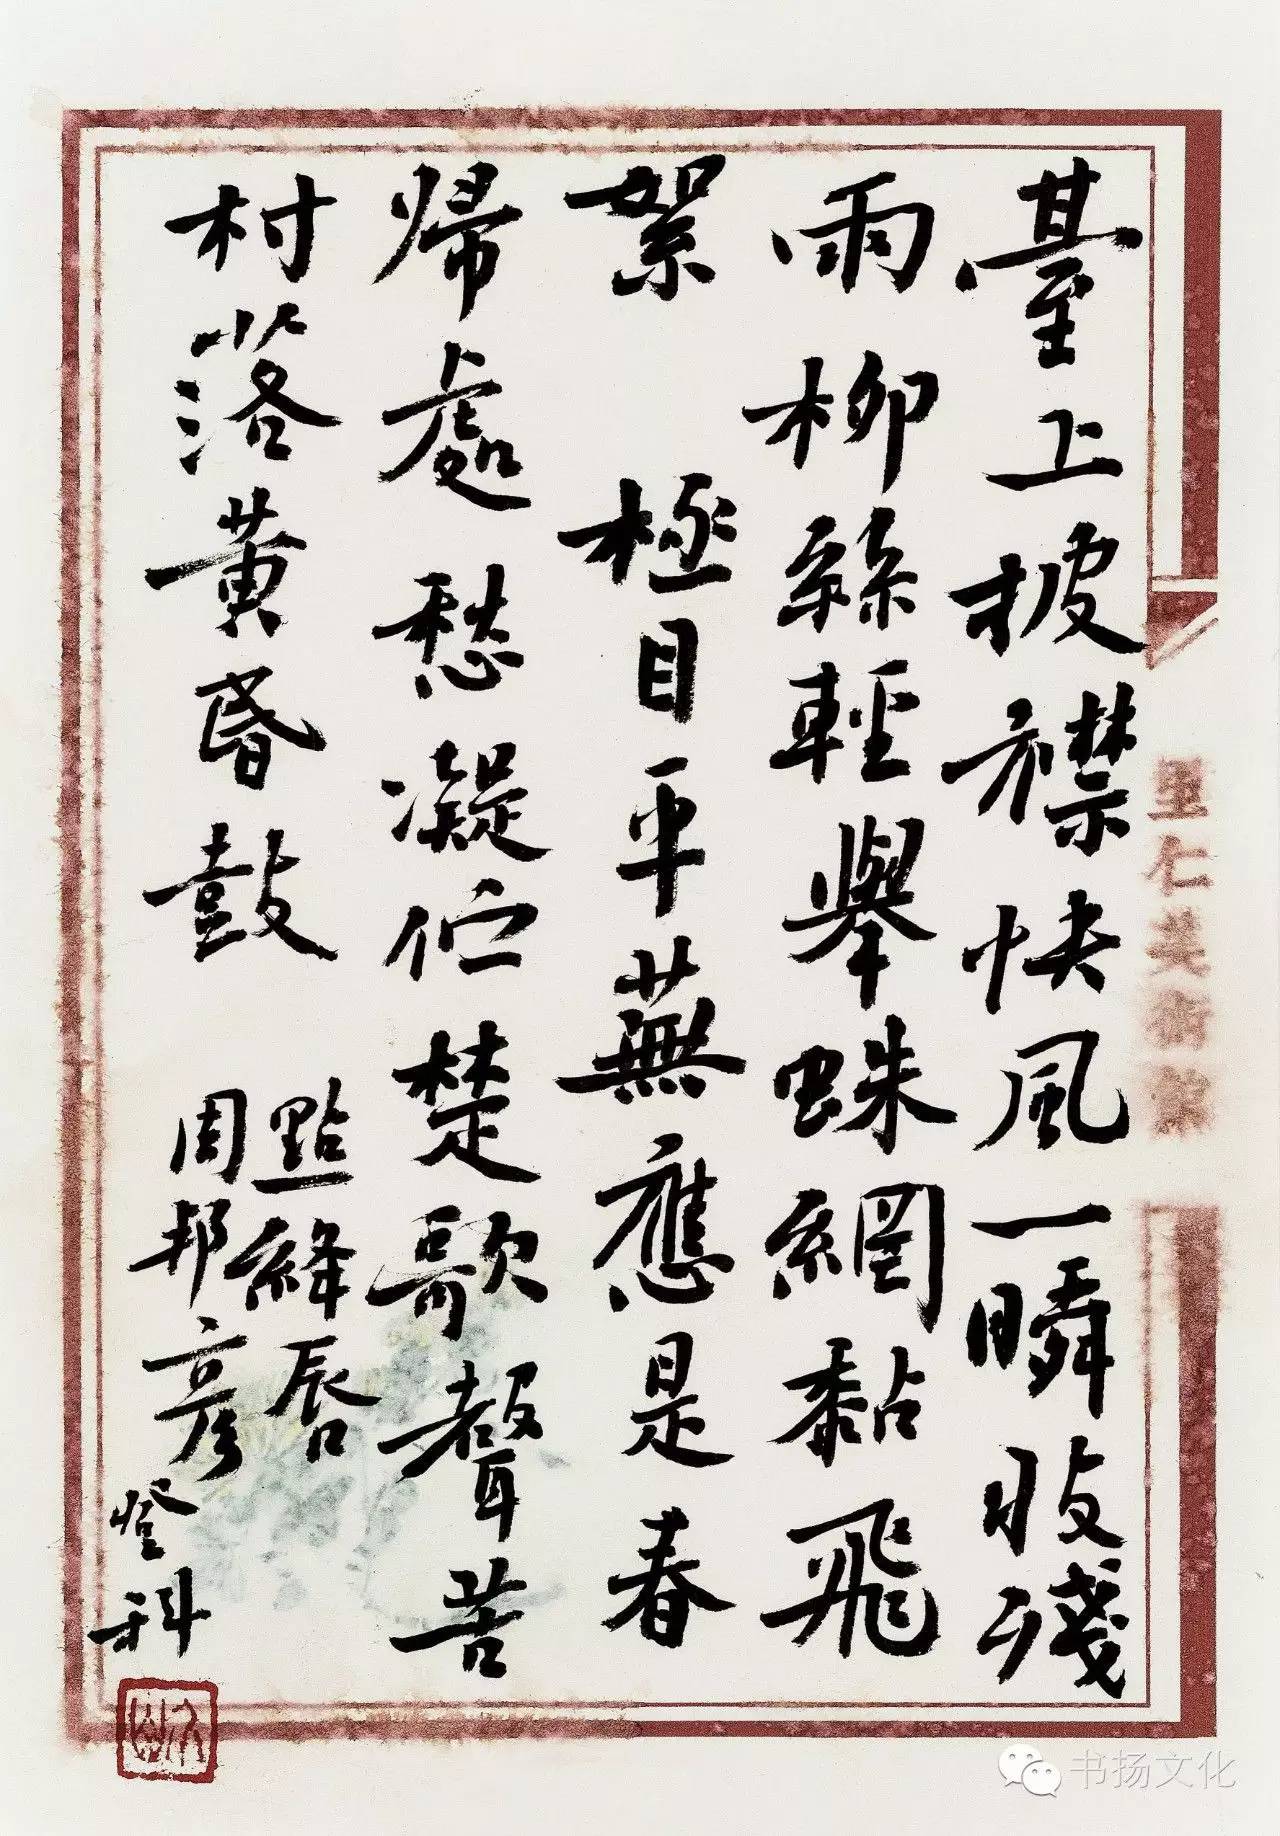 臺上披襟快風一瞬收殘
雨柳絲輕舉蛛網黏飛
絮 極目平蕪應是春
歸處愁凝佇楚歌聲苦
村落黃昏鼓 點絳唇
周邦彥
登科
里仁美術館
书扬文化